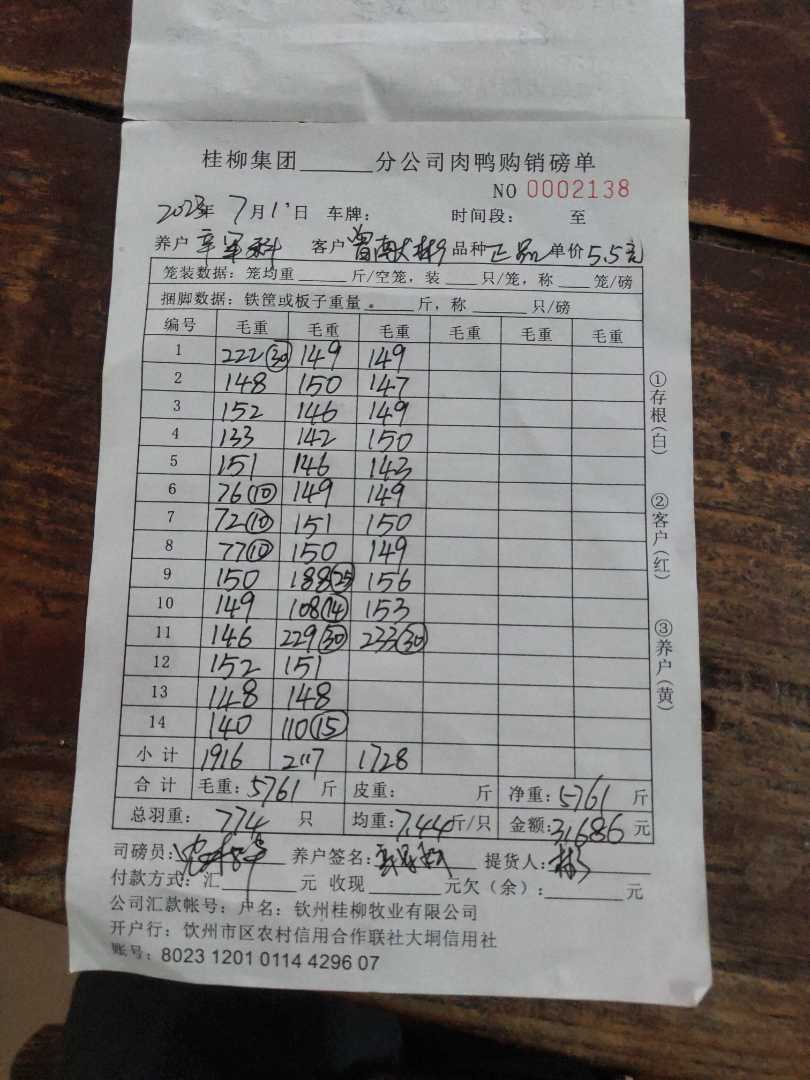 桂柳集团______分公司肉鸭购销磅单
NO 0002138
2023年 7月1日 车牌: 时间段: 至
养户 客户 品种 正品 单价 5.5元
笼装数据:笼均重______斤/空笼,装____只/笼,称____笼/磅
捆脚数据:铁筐或板子重量______斤,称______只/磅
编号 毛重 毛重 毛重 毛重 毛重 毛重
1 222(30) 149 149
2 148 150 147
3 152 146 149
4 133 142 150
5 151 146 143
6 76(10) 149 149
7 72(10) 151 150
8 77(10) 150 149
9 150 188(25) 156
10 149 108(14) 153
11 146 229(30) 233(30)
12 152 151
13 148 148
14 140 110(15)
小计 1916 2117 1728
合计 毛重:5761斤 皮重: 斤 净重:5761斤
总羽重: 774 只 均重:7.44斤/只 金额:31686元
司磅员: 养户签名: 提货人:
付款方式:汇______元 收现______元欠(余):______元
公司汇款帐号:户名:钦州桂柳牧业有限公司
开户行:钦州市区农村信用合作联社大垌信用社
账号:8023 1201 0114 4296 07
①存根(白)
②客户(红)
③养户(黄)